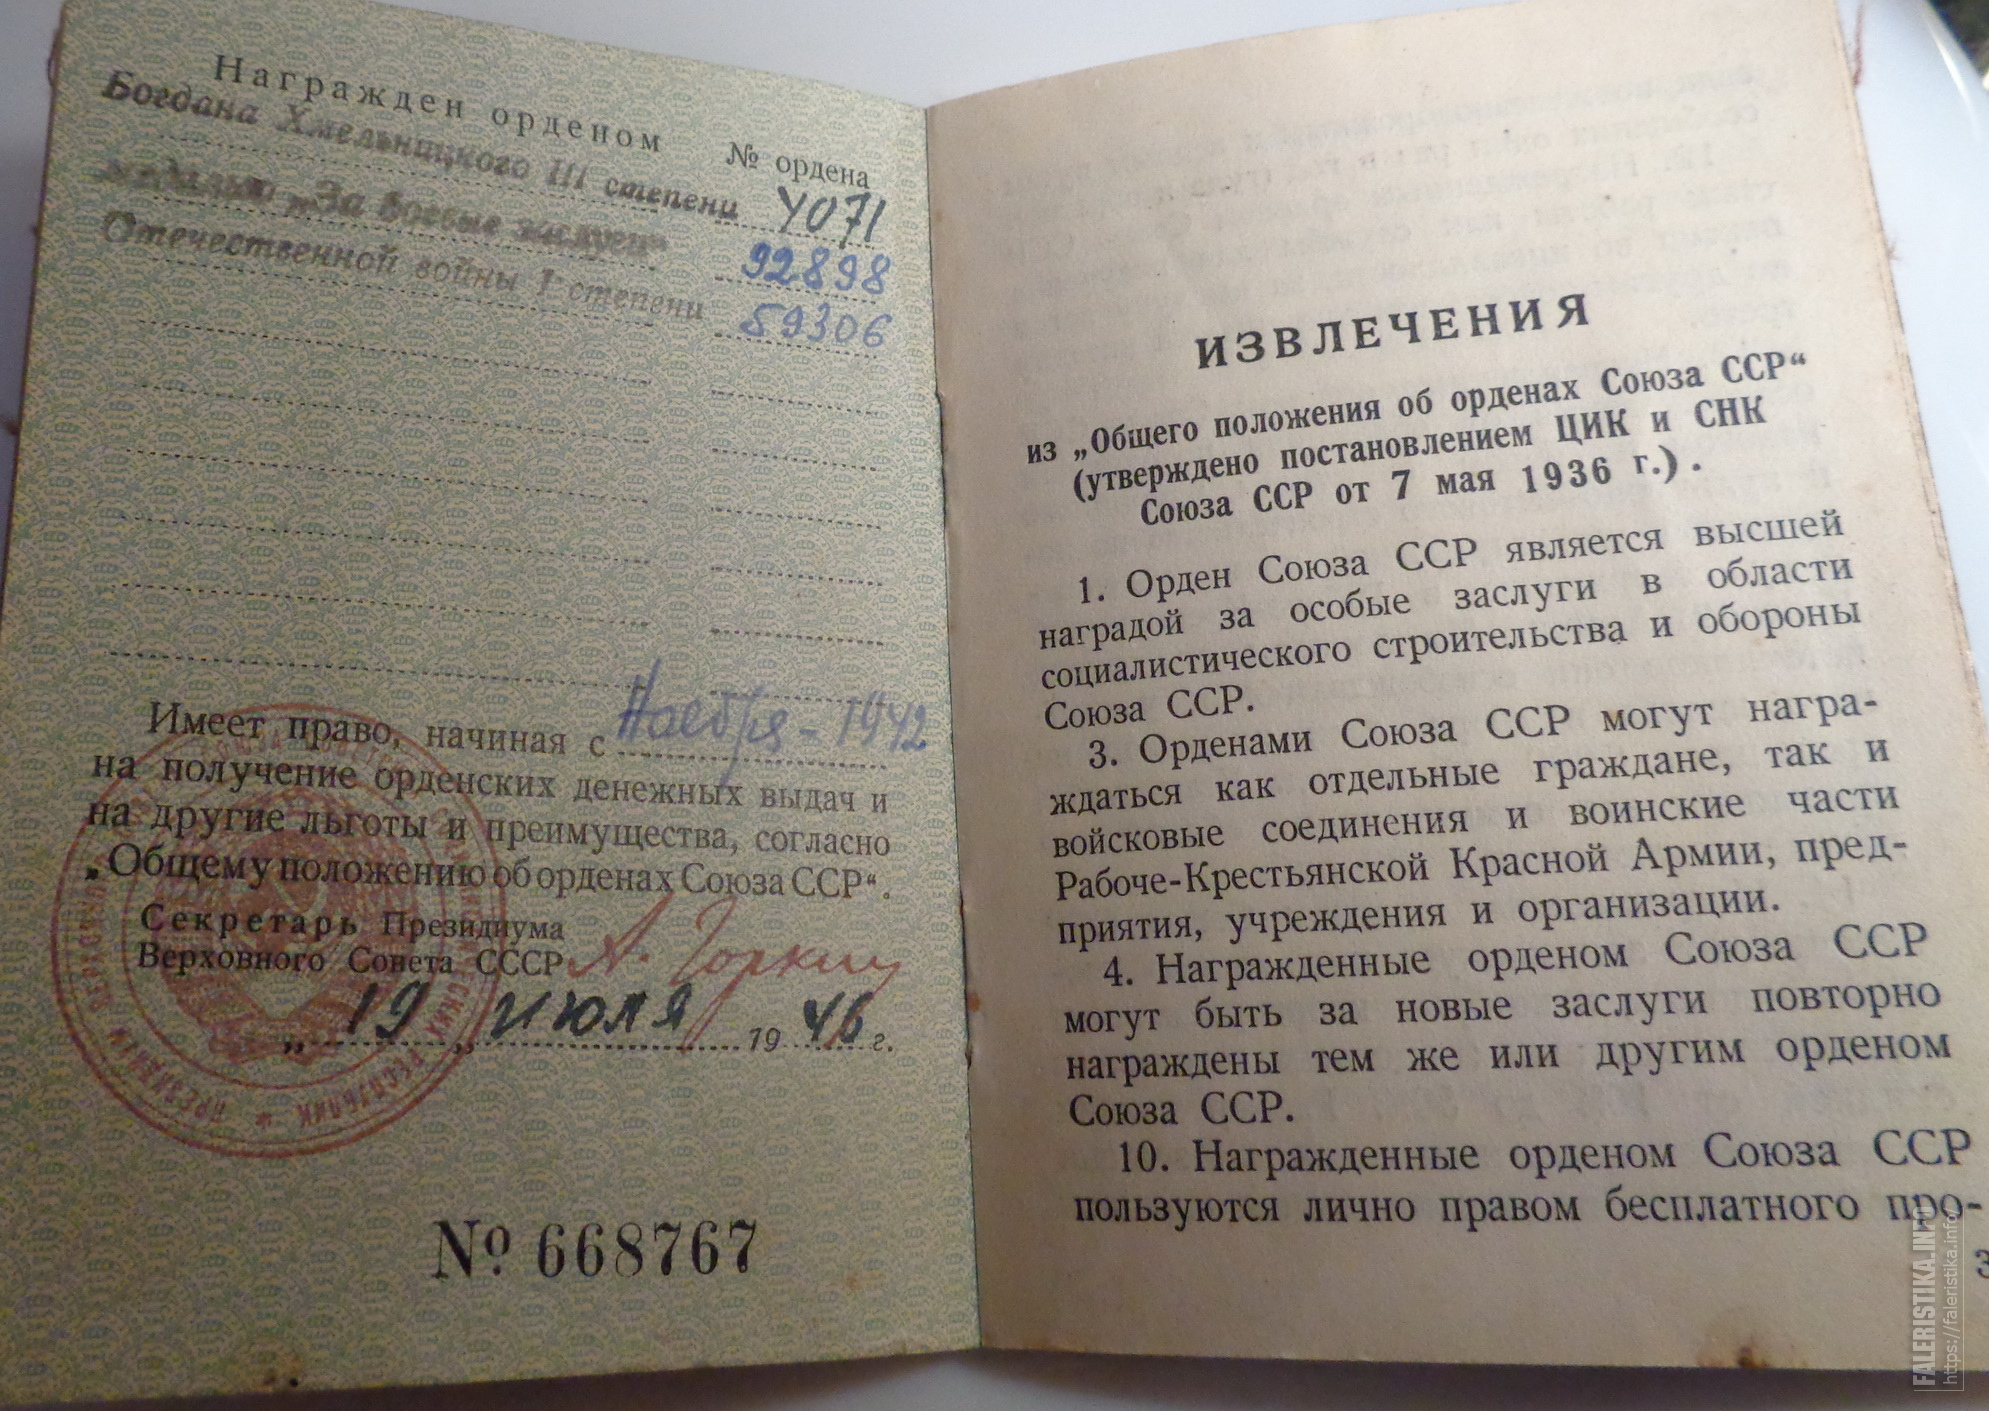 Награжден орденом
№ ордена
Богдана Хмельницкого III степени 4071
медалью „За боевые заслуги“ 92898
Отечественной войны I степени 59306
Имеет право, начиная с Ноября - 1942
на получение орденских денежных выдач и
на другие льготы и преимущества, согласно
„Общему положению об орденах Союза ССР“.
Секретарь Президиума
Верховного Совета СССР А. Горкин
„19„ июля 1946 г.
№ 668767
ПРЕЗИДИУМ ВЕРХОВНОГО
РЕСПУБЛИК
ИЗВЛЕЧЕНИЯ
из „Общего положения об орденах Союза ССР“
(утверждено постановлением ЦИК и СНК
Союза ССР от 7 мая 1936 г.).
1. Орден Союза ССР является высшей
наградой за особые заслуги в области
социалистического строительства и обороны
Союза ССР.
3. Орденами Союза ССР могут награ-
ждаться как отдельные граждане, так и
войсковые соединения и воинские части
Рабоче-Крестьянской Красной Армии, пред-
приятия, учреждения и организации.
4. Награжденные орденом Союза ССР
могут быть за новые заслуги повторно
награждены тем же или другим орденом
Союза ССР.
10. Награжденные орденом Союза ССР
пользуются лично правом бесплатного про-
3
FALERISTIKA.INFO
https://faleristika.info